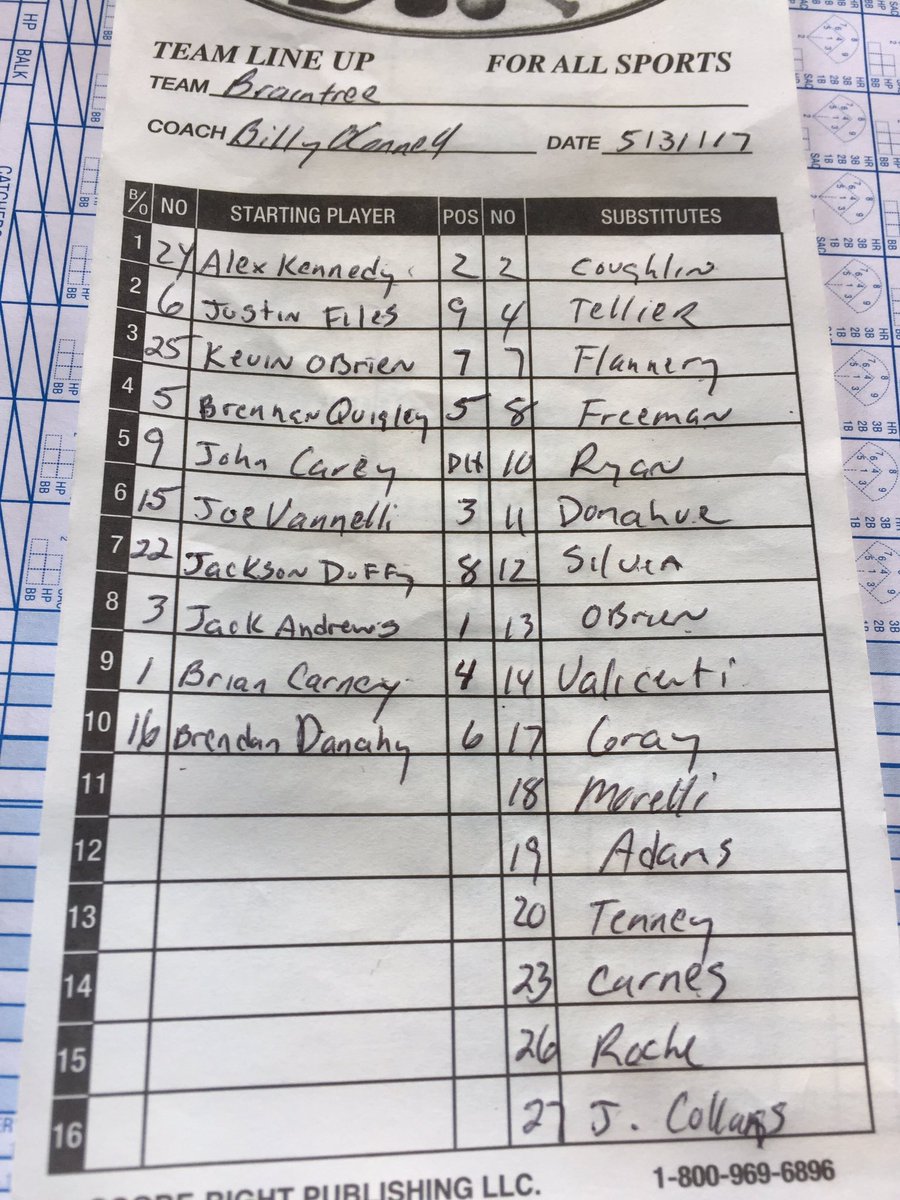 TEAM LINE UP FOR ALL SPORTS
TEAM Braintree
COACH Billy O'Connell DATE 5/31/17
B/O NO STARTING PLAYER POS NO SUBSTITUTES
1 24 Alex Kennedy 2 2 Coughlin
2 6 Justin Files 9 4 Tellier
3 25 Kevin OBrien 7 7 Flannery
4 5 Brennan Quigley 5 8 Freeman
5 9 John Carey DH 10 Ryan
6 15 Joe Vannelli 3 11 Donahue
7 22 Jackson Duffy 8 12 Silvia
8 3 Jack Andrews 1 13 OBrien
9 1 Brian Carney 4 14 Valicenti
10 16 Brendan Danahy 6 17 Gray
11 18 Morelli
12 19 Adams
13 20 Tenney
14 23 Carnes
15 26 Roche
16 27 J.
RIGHT PUBLISHING LLC. 1-800-969-6896